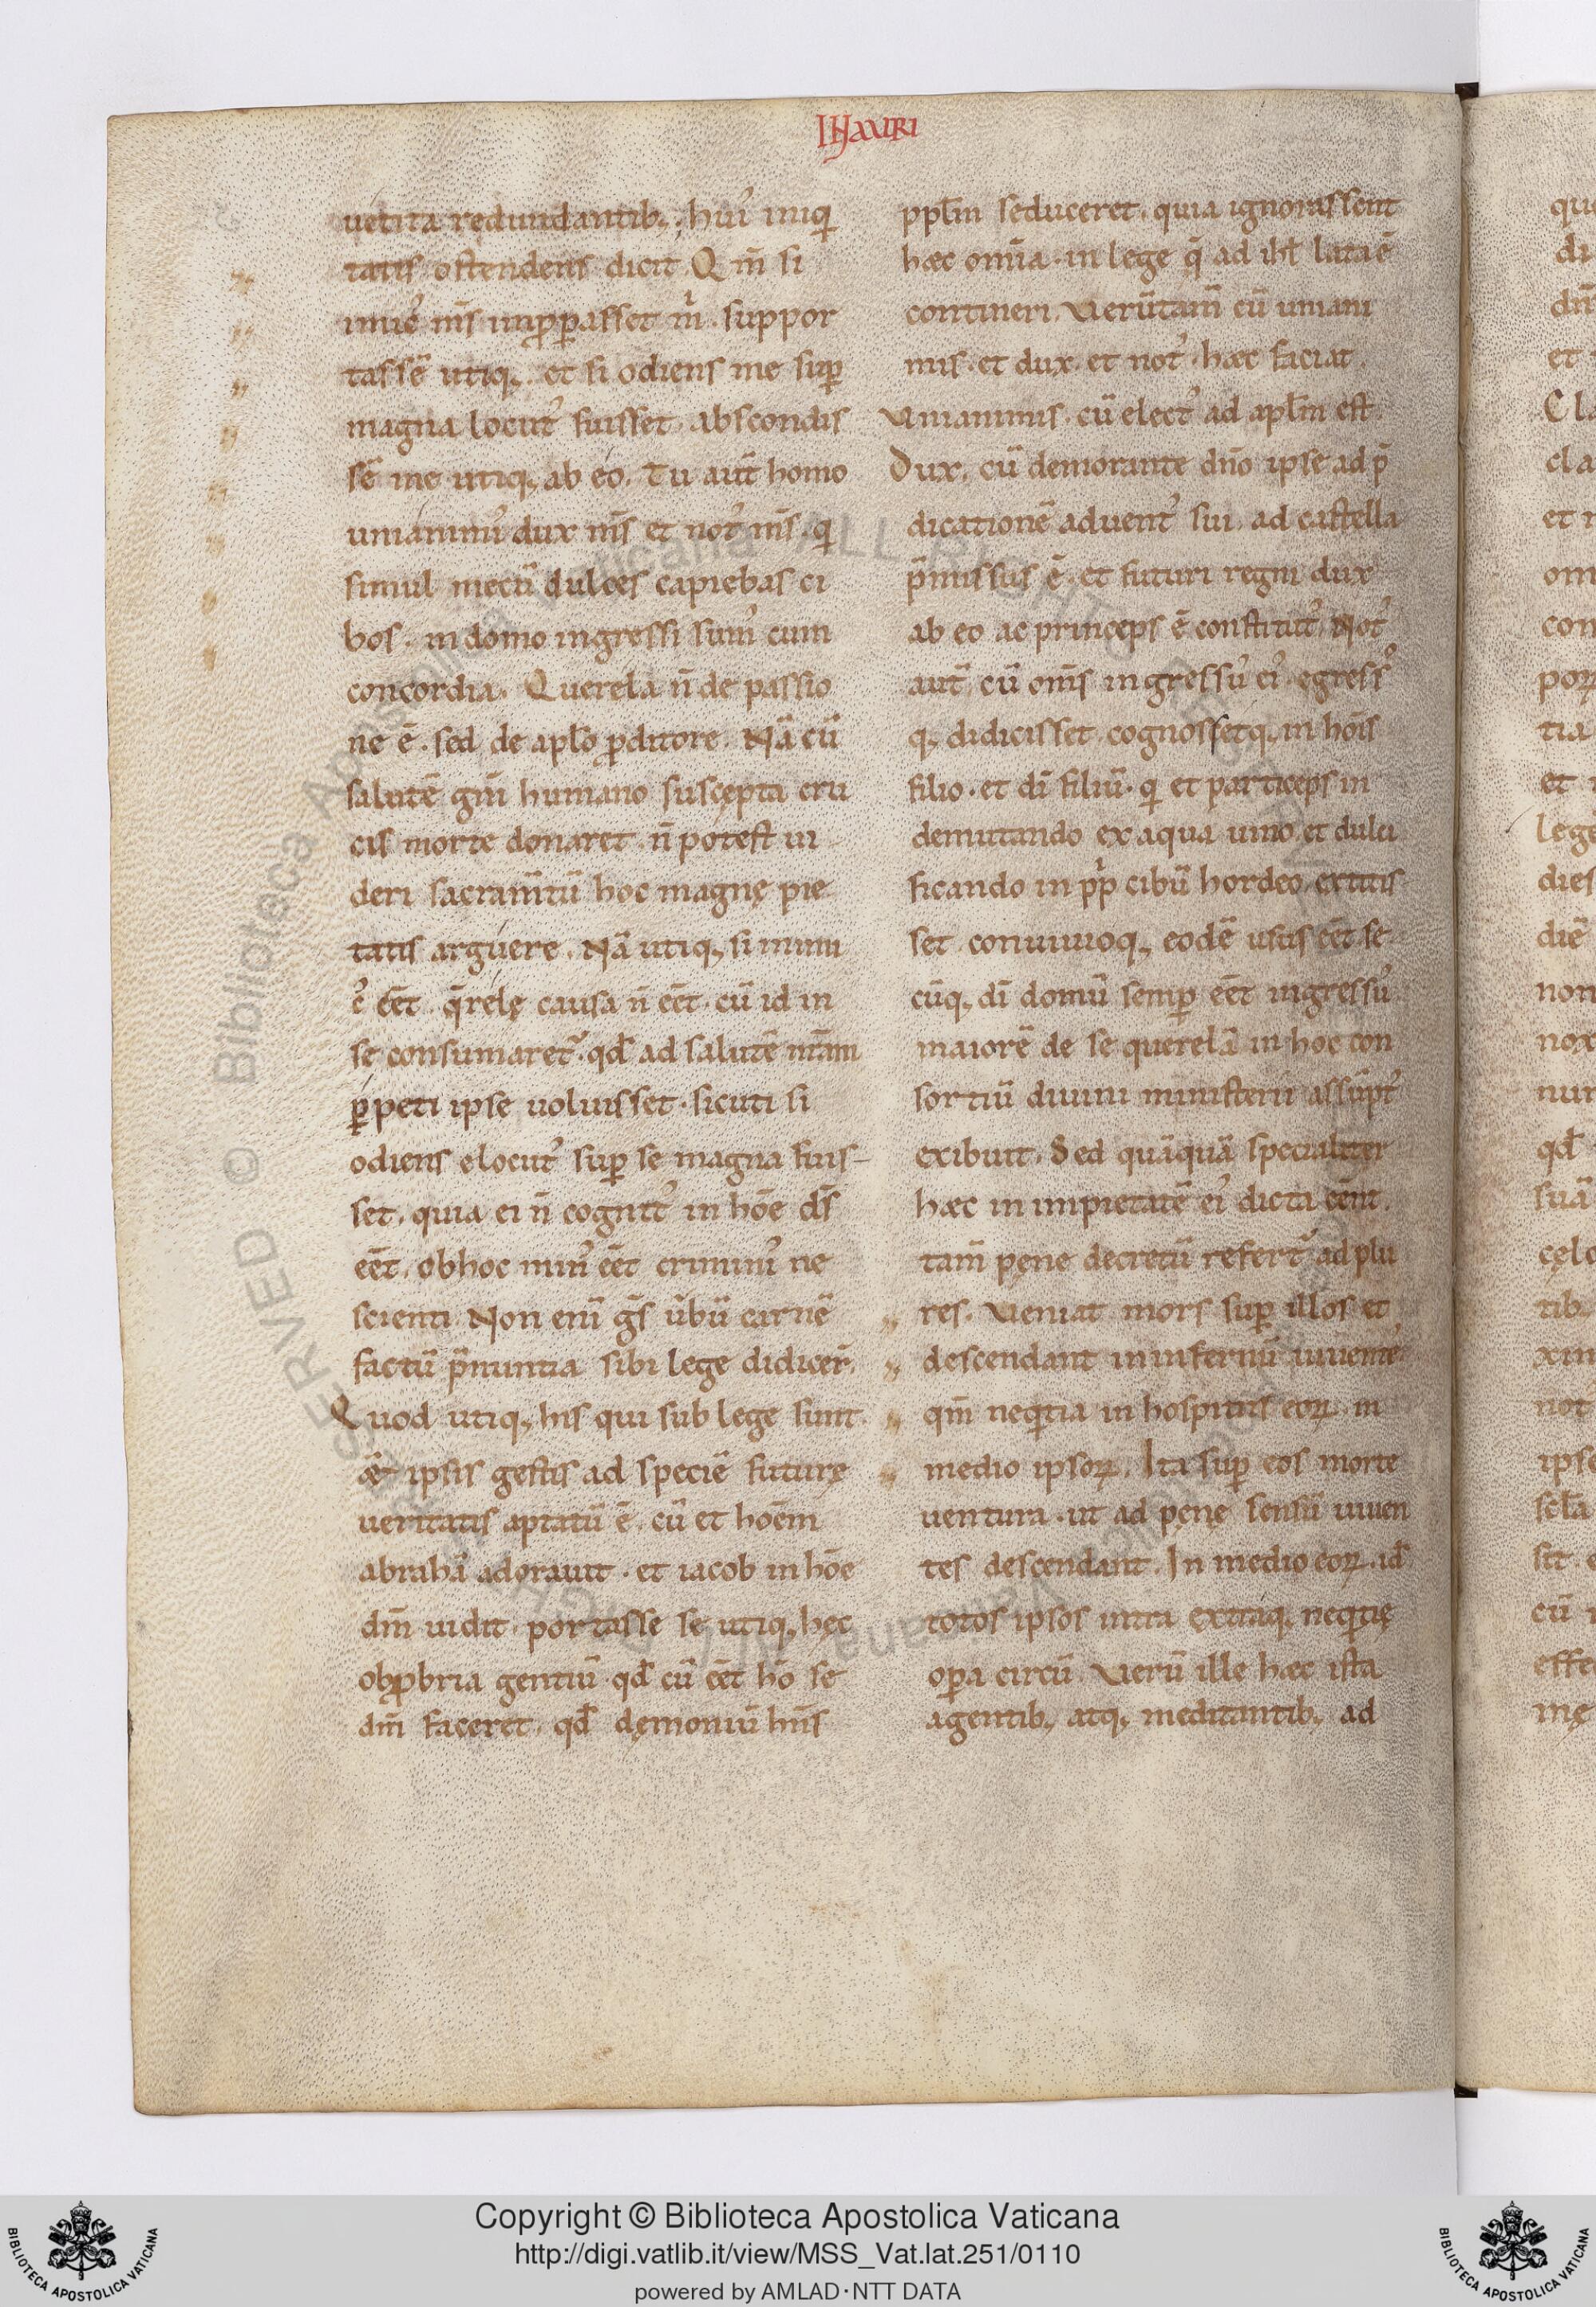 uetita redundantib; huiꝰ iniqͥ
tatis ostendens dicit. Qm̄ si
inimicꝰ
magna locutꝰ fuisset. abscondis
sē me utiq; ab eo. Tu aut̄ homo
unanimꝰ dux mꝰs et notꝰ mꝰs. qͥ
simul mecū dulces capiebas ci
bos. in domo ingressi sumꝰ cum
concordia. Querela n̄ de passio
ne ē. sed de apl̄o ꝓditore. Nā cū
salutē gn̄i humano suscepta cru
cis morte donaret. n̄ potest ui
deri sacram̄tū hoc magnę pie
tatis arguere. Nā utiq; si inimi
cꝰ eēt. q̄relę causa n̄ eēt. cū id in
se consumaret᷑. qd̄ ad salutē nr̄am
ꝑpeti ipse uoluisset. sicuti si
odiens elocutꝰ suꝑ se magna fuis-
set. quia ei n̄ cognitꝰ in hōe dꝰs
eēt. ob hoc minꝰ eēt criminꝰ ne
scienti. Non enī gꝰs ūbū carnē
factū p̄nuntia sibi lege didicer̄.
Quod utiq; his qui sub lege sunt.
et ipsis gestis ad speciē futurę
ueritatis aptatū ē. cū et hoēm
abrahā adorauit. et iacob in hōe
dm̄ uidit. portasse se utiq; hęc
obꝓbria gentiū. qd̄ cū eēt hō se
dm̄ faceret. qd̄ dęmoniū hn̄s
ppl̄m seduceret. quia ignorassent
hæc om̄ia. in lege q̄ ad ihl̄ lata ē
contineri. Uerūtam̄ cū unani
mis. et dux. et notꝰ. hæc faciat.
Unanimis. cū electꝰ ad apl̄m est.
Dux. cū demorante dn̄o ipse ad p̄
dicationē aduentꝰ sui. ad castella
p̄missus ē. et futuri regni dux
ab eo ac princeps ē constitutꝰ. Notꝰ
aut̄. cū om̄s ingressꝰ eiꝰ egressꝰ
q; didicisset. cognossetq; in hōis
filio. et dī filiū. qͥ et particeps in
demutando ex aqua uino. et dulci
ficando in cibū hordeo. extitis
set. conuiuioq; eodē usus eēt. se
cūq; dī domū semꝑ eēt ingressꝰ.
maiorē de se querelā in hoc con
sortiū diuini ministerii assūptꝰ
exibuit. Sed quāquā specialiter
hæc in impietatē eiꝰ dicta eēnt.
tam̄ pęne decretū refert᷑ ad plu
res. Ueniat mors suꝑ illos et
descendant in infernū uiuentes.
qm̄ neqͥtia in hospitiis eoꝝ. in
medio ipsoꝝ. Ita suꝑ eos morte
uentura. ut ad pęnę sensū uiuen
tes descendant. In medio eoꝝ. id
totos ipsos intra extraq; neqͥtię
oꝑa circū. Uerū ille hæc ista
agentib; atq; meditantib; ad
Copyright © Biblioteca Apostolica Vaticana
http://digi.vatlib.it/view/MSS_Vat.lat.251/0110
powered by AMLAD·NTT DATA